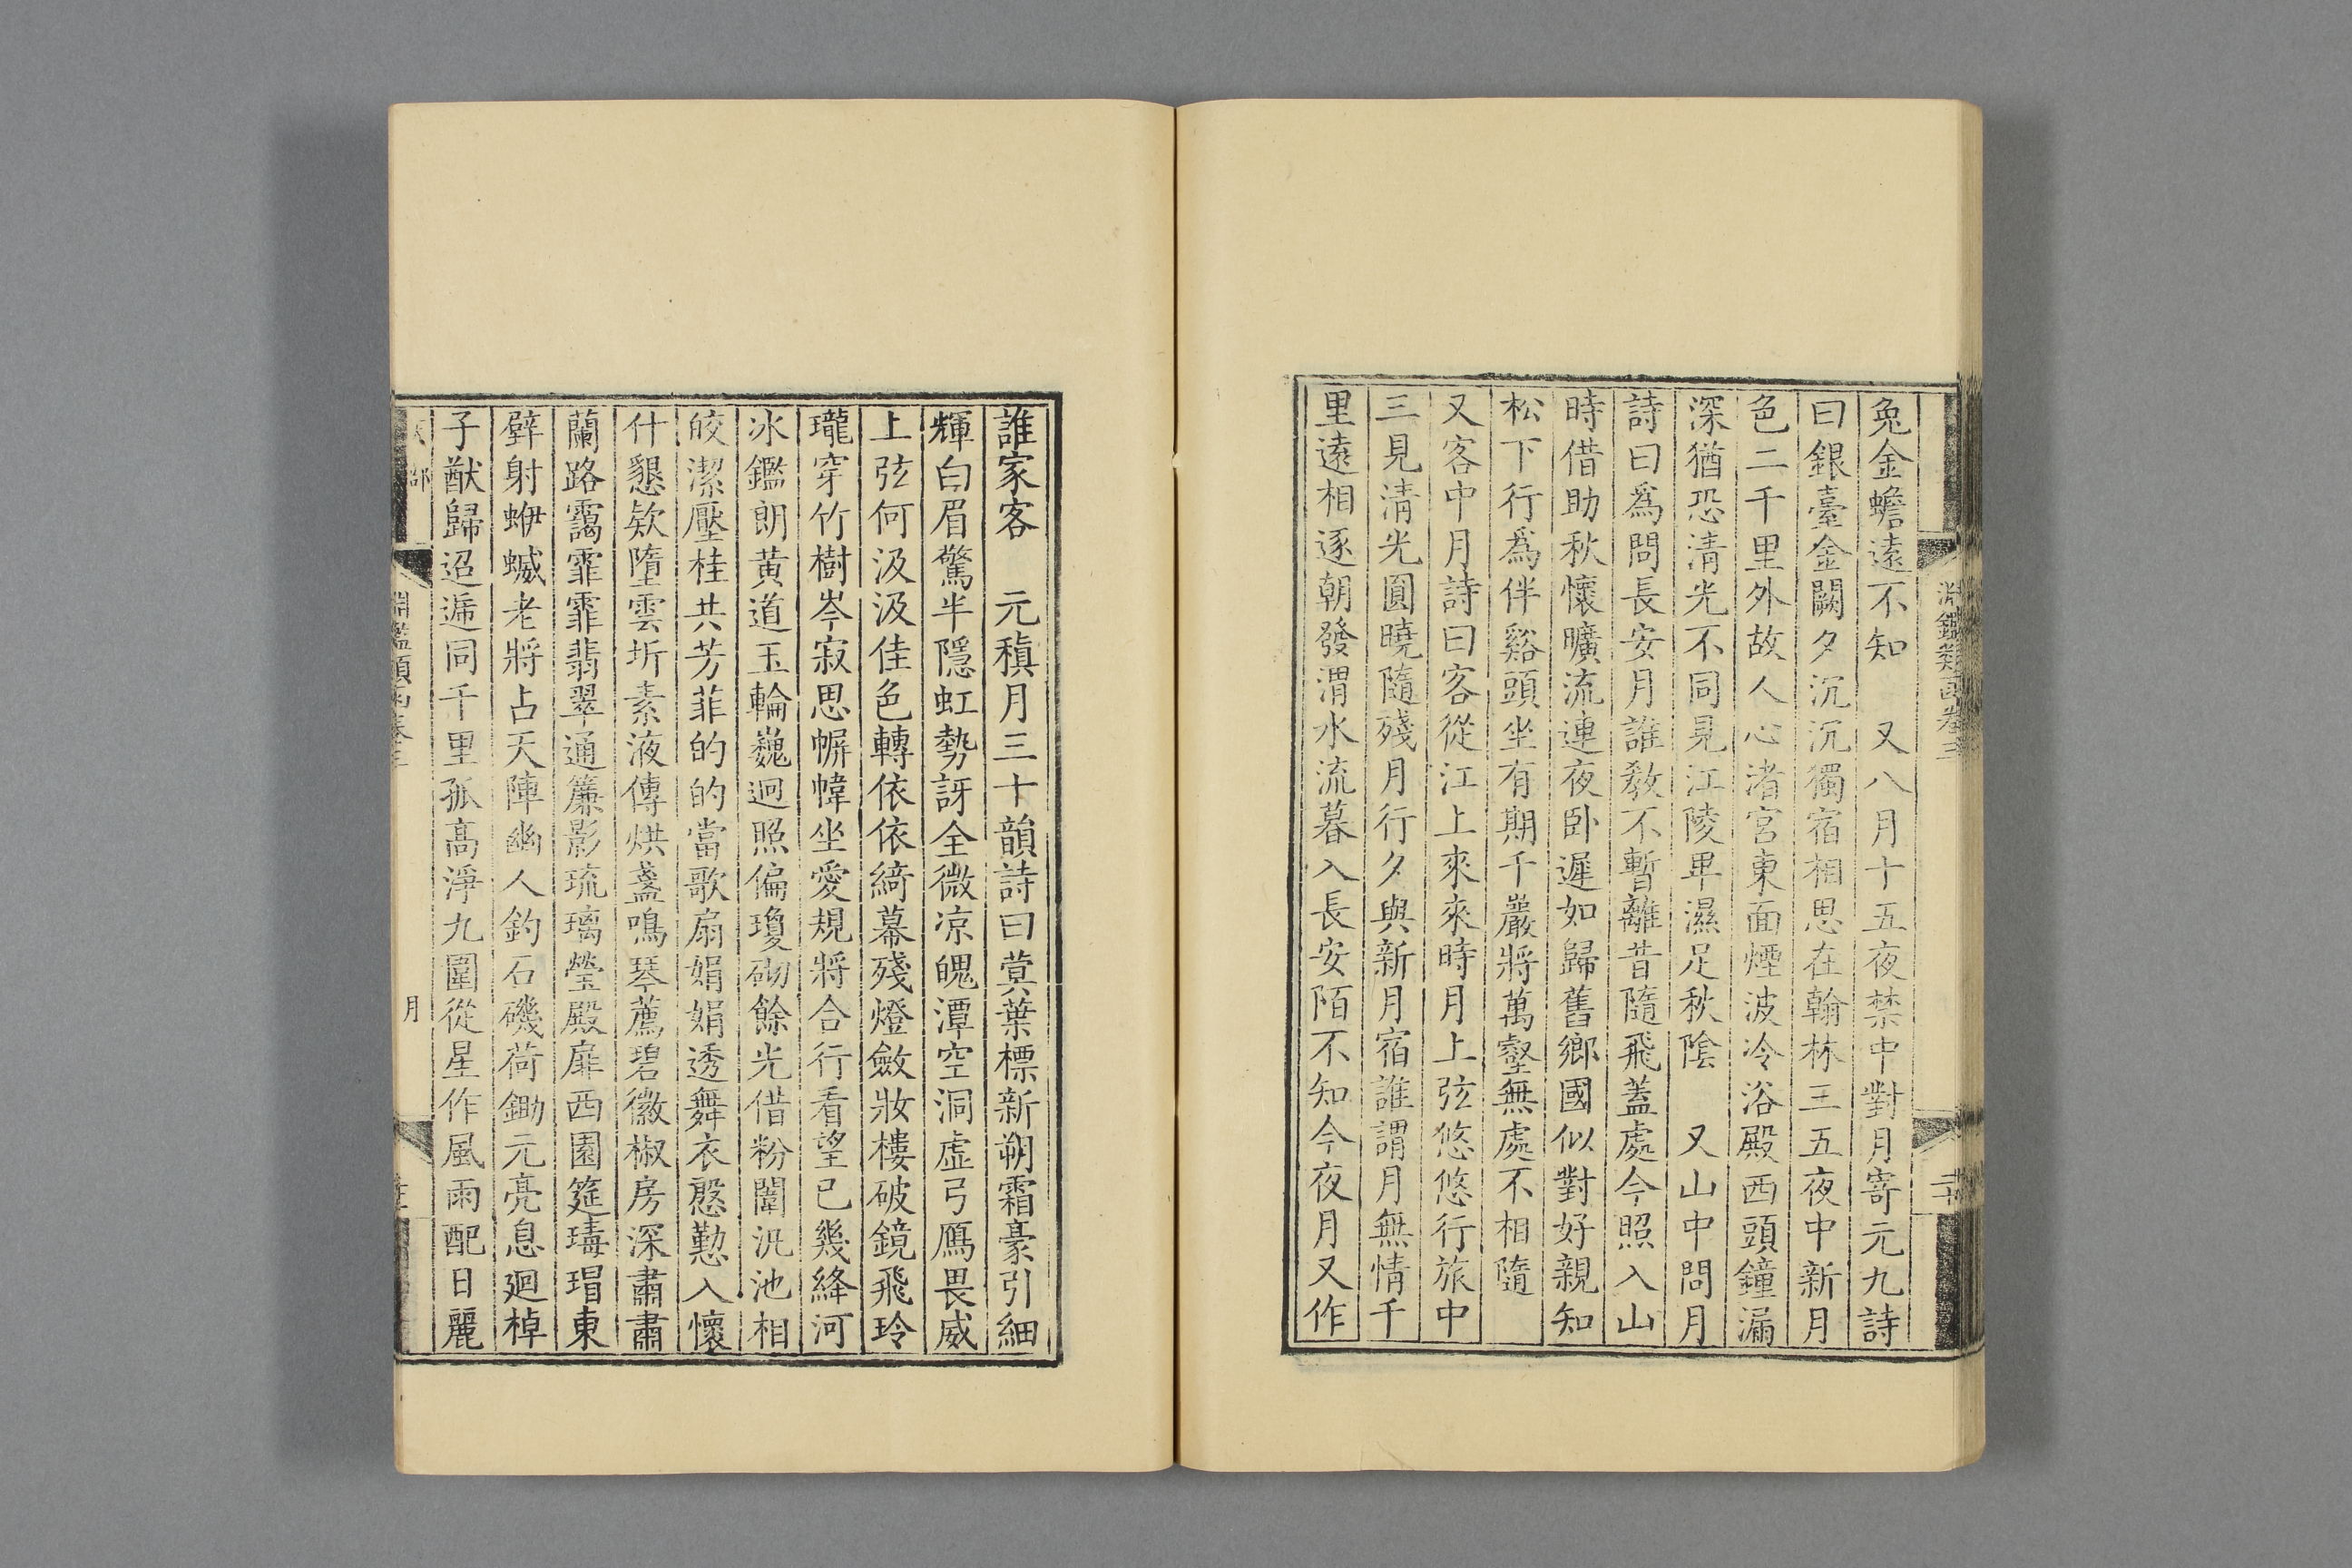 淵鑑類函卷三
兔金蟾遠不知　又八月十五夜禁中對月寄元九詩
曰銀臺金闕夕沉沉獨宿相思在翰林三五夜中新月
色二千里外故人心渚宮東面煙波冷浴殿西頭鐘漏
深猶恐清光不同見江陵卑濕足秋陰　又山中問月
詩曰爲問長安月誰教不暫離昔隨飛蓋處今照入山
時借助秋懷曠流連夜卧遲如歸舊鄉國似對好親知
松下行爲伴谿頭坐有期千巖將萬壑無處不相隨
又客中月詩曰客從江上來來時月上弦悠悠行旅中
三見清光圓曉隨殘月行夕與新月宿誰謂月無情千
里遠相逐朝發渭水流暮入長安陌不知今夜月又作
誰家客　元稹月三十韻詩曰蓂葉標新朔霜豪引細
輝白眉驚半隱虹勢訝全微凉魄潭空洞虛弓鴈畏威
上弦何汲汲佳色轉依依綺幕殘燈斂妝樓破鏡飛玲
瓏穿竹樹岑寂思幈幃坐愛規將合行看望已幾絳河
冰鑑朗黃道玉輪巍迥照偏瓊砌餘光借粉闈泥池相
皎潔壓桂共芳菲的的當歌扇娟娟透舞衣慇懃入懷
什懇欵墮雲圻素液傳烘盞鳴琴薦碧徽椒房深肅肅
蘭路靄霏霏翡翠通簾影琉璃瑩殿扉西園筵瑇瑁東
壁射蛜蝛老將占天陣幽人釣石磯荷鋤元亮息廻棹
子猷歸迢遞同千里孤高淨九圍從星作風雨配日麗
淵鑑類函卷三
月